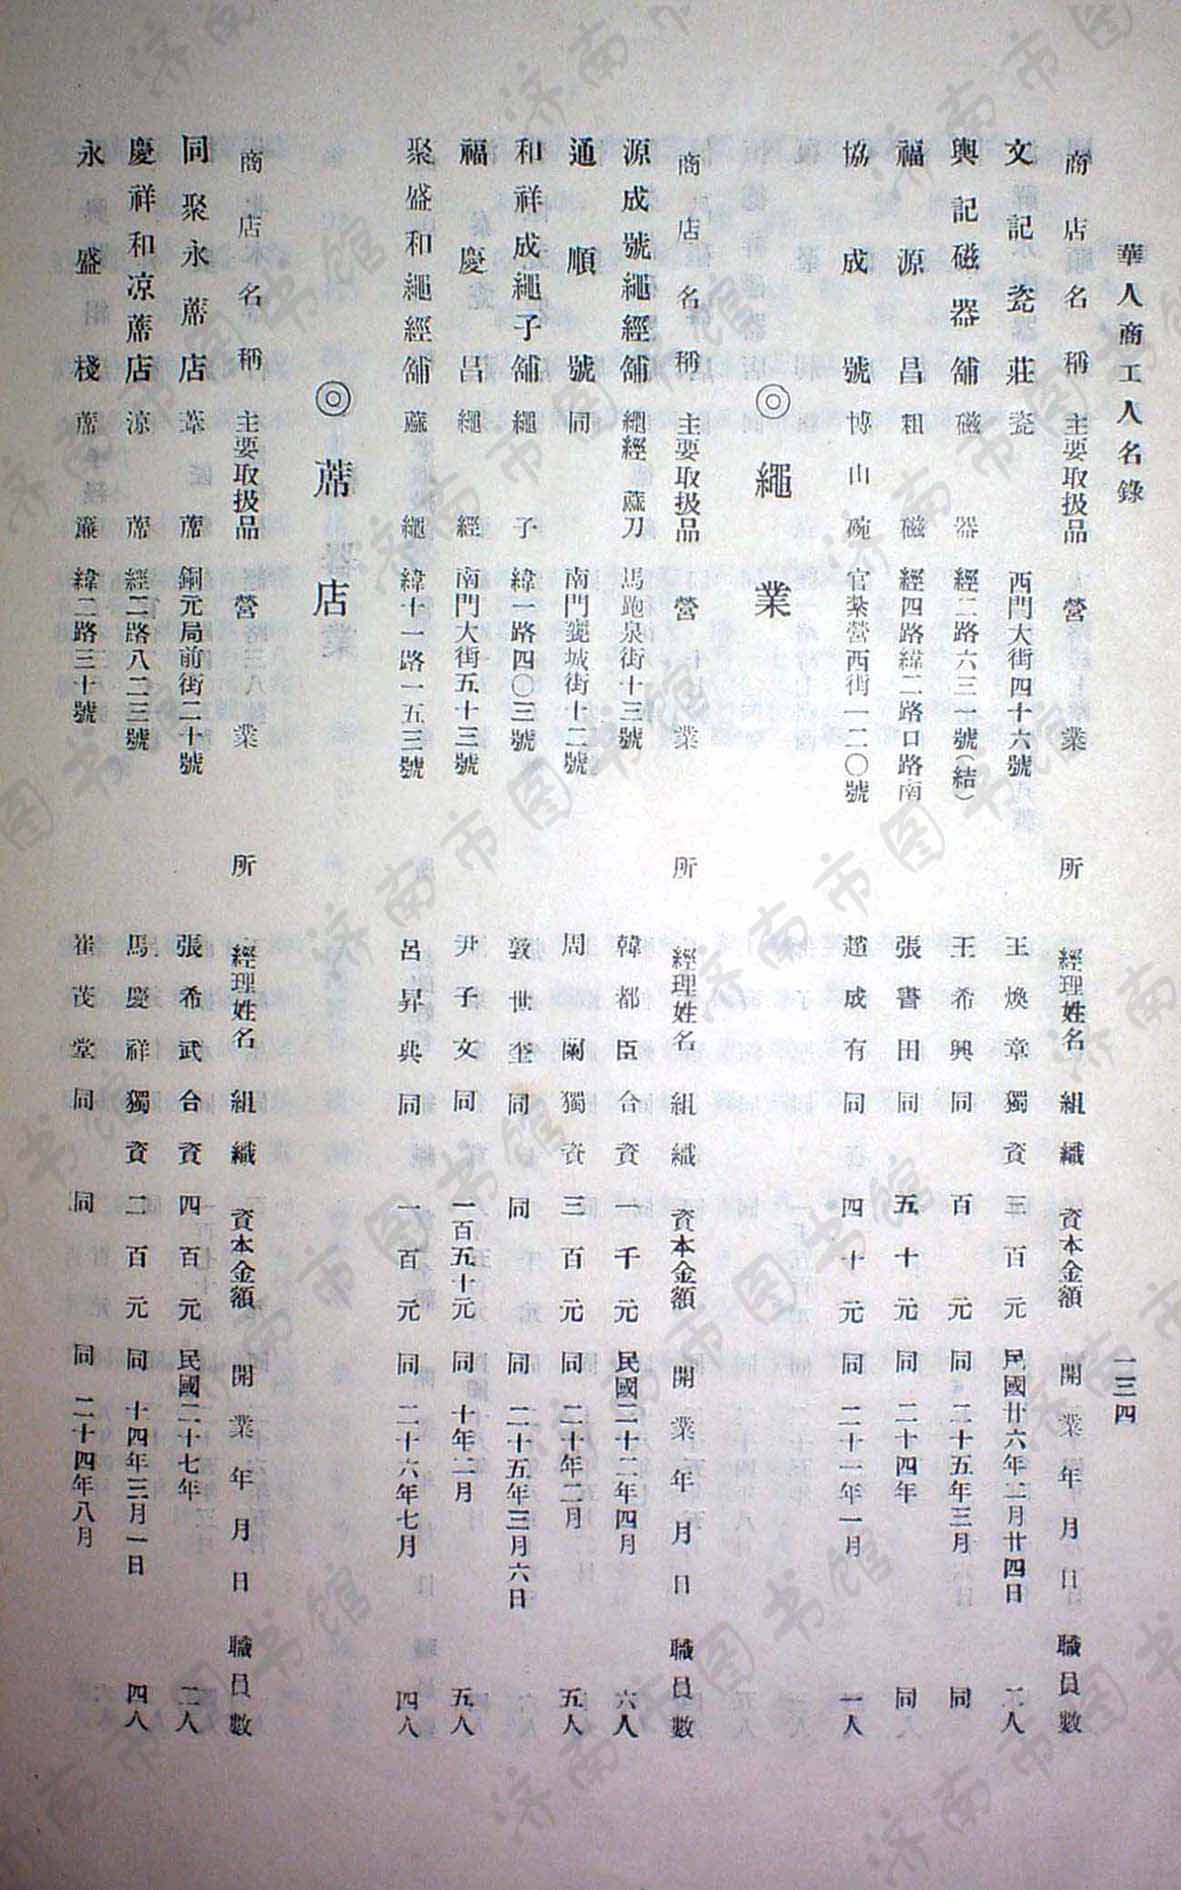 華人商工人名錄
一三四
商店名稱 主要取扱品 營業所 經理姓名 組織 資本金額 開業年月日 職員數
文記瓷莊 瓷 西門大街四十六號 王煥章 獨資 三百元 民國廿六年二月廿四日 二人
興記磁器舖 磁器 經二路六三一號(結) 王希興 同 百元 同二十五年三月 同
福源昌 粗磁 經四路緯二路口路南 張書田 同 五十元 同二十四年 同
協成號 博山碗 官紮營西街一二〇號 趙成有 同 四十元 同二十一年一月 一人
◎繩業
商店名稱 主要取扱品 營業所 經理姓名 組織 資本金額 開業年月日 職員數
源成號繩經舖 繩經蔴刀 馬跑泉街十三號 韓都臣 合資 一千元 民國二十二年四月 六人
通順號 同 南門甕城街十二號 周蘭 獨資 三百元 同二十年二月 五人
和祥成繩子舖 繩子 緯一路四〇三號 敦世奎 同 同 同二十五年三月六日
福慶昌 繩經 南門大街五十三號 尹子文 同 一百五十元 同十年二月 五人
聚盛和繩經舖 蔴繩 緯十一路一五三號 呂昇典 同 一百元 同二十六年七月 四人
◎蓆店
商店名稱 主要取扱品 營業所 經理姓名 組織 資本金額 開業年月日 職員數
同聚永蓆店 葦蓆 銅元局前街二十號 張希武 合資 四百元 民國二十七年 二人
慶祥和凉蓆店 涼蓆 經二路八二三號 馬慶祥 獨資 二百元 同十四年三月一日 四人
永盛棧 蓆簾 緯二路三十號 崔茂堂 同 同 同二十四年八月